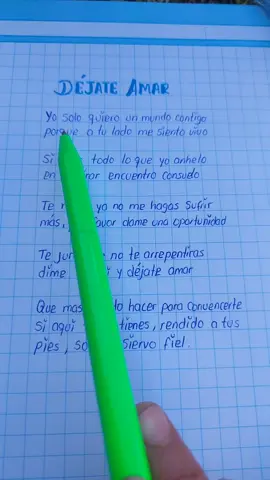 DÉJATE AMAR
Yo solo quiero un mundo contigo
porque a tu lado me siento vivo
Si todo lo que yo anhelo
en encuentro consuelo
Te ya no me hagas sufrir
más, dame una oportunidad
Te no te arrepentiras
dime y déjate amar
Que mas hacer para convencerte
si aqui tienes, rendido a tus
pies, siervo fiel.